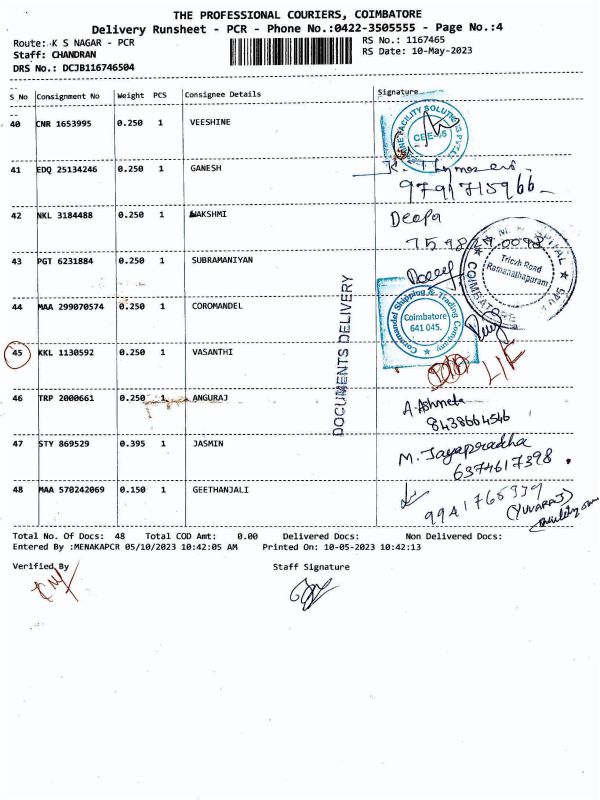 THE PROFESSIONAL COURIERS, COIMBATORE
Delivery Runsheet - PCR - Phone No.:0422-3505555 - Page No.:4
Route: K S NAGAR - PCR
RS No.: 1167465
Staff: CHANDRAN
RS Date: 10-May-2023
DRS No.: DCJB116746504
S No Consignment No Weight PCS Consignee Details Signature
40 CNR 1653995 0.250 1 VEESHINE
CEE-45
41 EDQ 25134246 0.250 1 GANESH
9791715966
42 NKL 3184488 0.250 1 LAKSHMI Deepa
43 PGT 6231884 0.250 1 SUBRAMANIYAN
Trichy Road
Ramanathapuram
COIMBATORE
44 MAA 299070574 0.250 1 COROMANDEL
Coromandel Shipping & Trading Company
Coimbatore
641 045.
DOCUMENTS DELIVERY
45 KKL 1130592 0.250 1 VASANTHI
46 TRP 2000661 0.250 1 ANGURAJ A. Ashmeta
8438664546
47 STY 869529 0.395 1 JASMIN M. Jayapradha
6374617398
48 MAA 570242069 0.150 1 GEETHANJALI
(YUVARAJ)
Total No. Of Docs: 48 Total COD Amt: 0.00 Delivered Docs: Non Delivered Docs:
Entered By :MENAKAPCR 05/10/2023 10:42:05 AM Printed On: 10-05-2023 10:42:13
Verified By Staff Signature